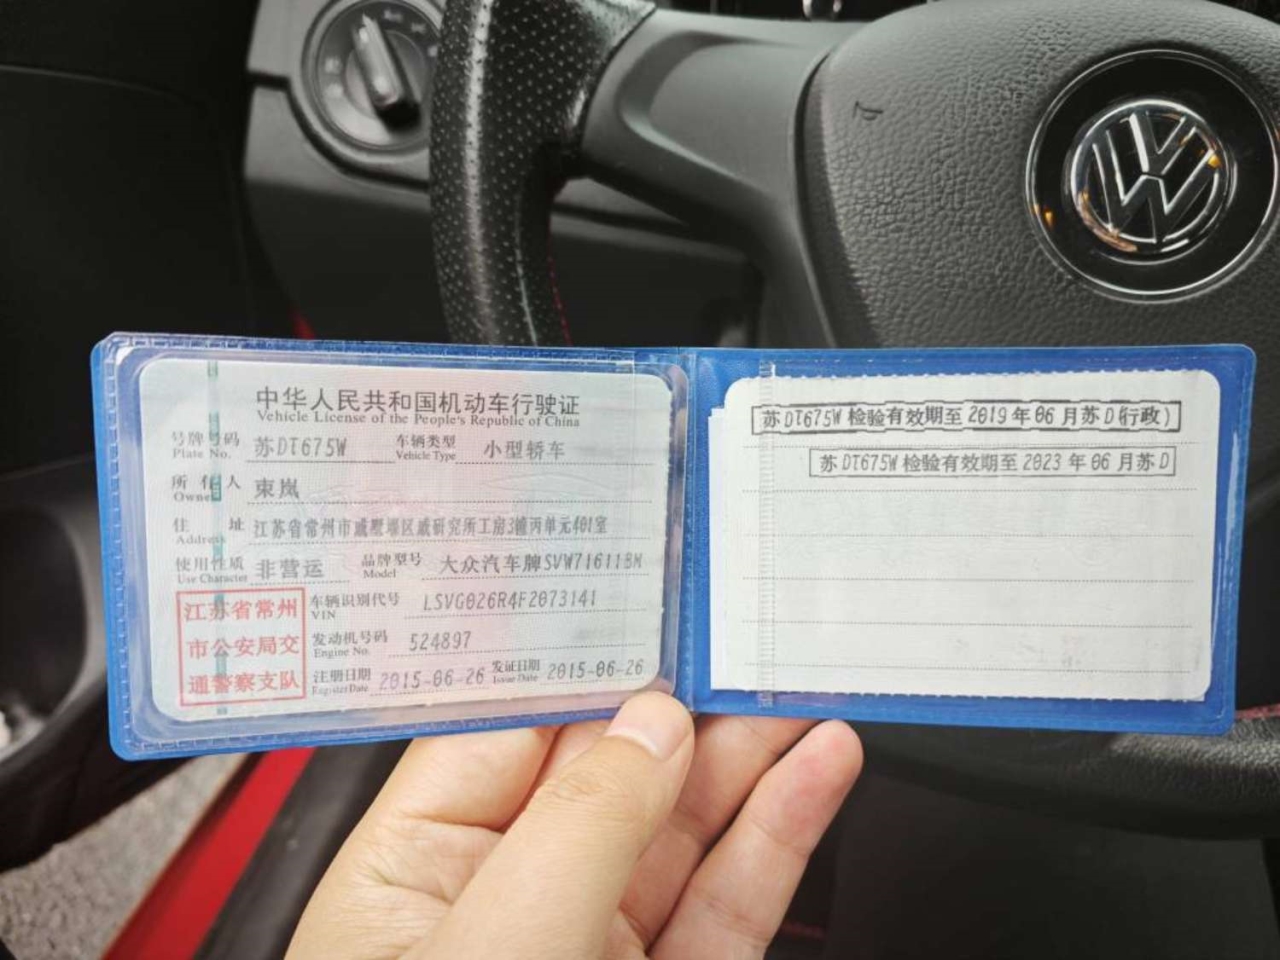 中华人民共和国机动车行驶证
Vehicle License of the People's Republic of China
号牌号码 苏DT675W 车辆类型 小型轿车
Plate No. Vehicle Type
所有人 束岚
Owner
住址 江苏省常州市戚墅堰区戚研究所工房3幢丙单元401室
Address
使用性质 非营运 品牌型号 大众汽车牌SVW71611BM
Use Character Model
江苏省常州
市公安局交
通警察支队
车辆识别代号 LSVG026R4F2073141
VIN
发动机号码 524897
Engine No.
注册日期 2015-06-26 发证日期 2015-06-26
Register Date Issue Date
苏DT675W检验有效期至2019年06月苏D(行政)
苏DT675W检验有效期至2023年06月苏D